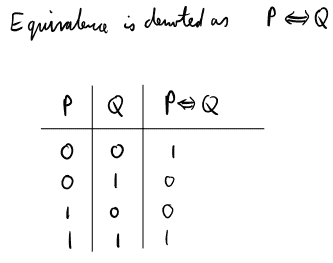 Equivalence is denoted as P ⇔ Q
P Q P⇔Q
0 0 1
0 1 0
1 0 0
1 1 1